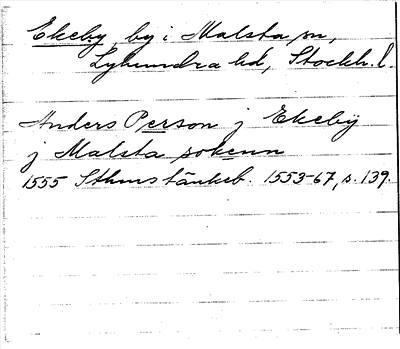 Ekeby, by i Malsta sn,
Lyhundra hd, Stockh. l.
Anders Person j Ekebÿ
j Malsta sokenn
1555 Sthmstänkeb. 1553-67, s. 139.